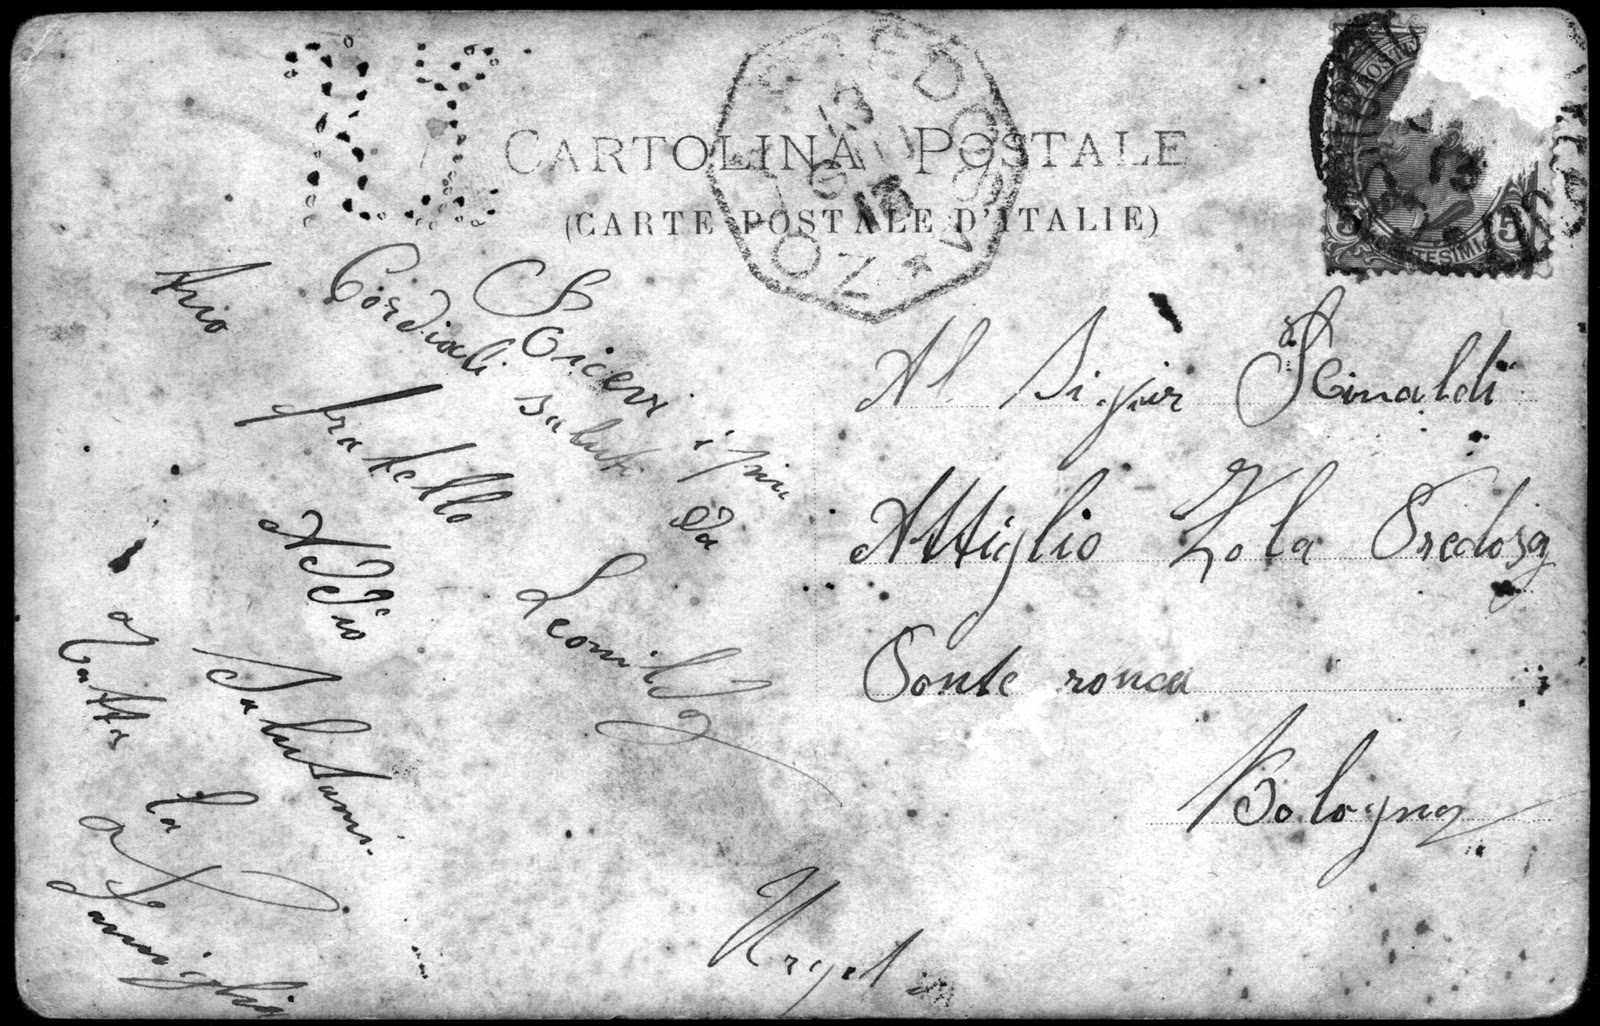 CARTOLINA POSTALE
(CARTE POSTALE D'ITALIE)
5 5
Ricevi i più
Cordiali saluti Da
tuo fratello Leonilda
ADDio
Salutami
a tutti la
Famiglia
Al Sigior Rinaldi
Attiglio Zola Predosa
Ponte ronca
Bologna